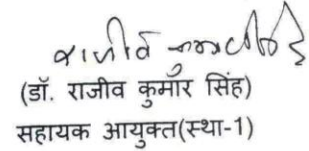 (डॉ. राजीव कुमार सिंह)
सहायक आयुक्त(स्था-1)